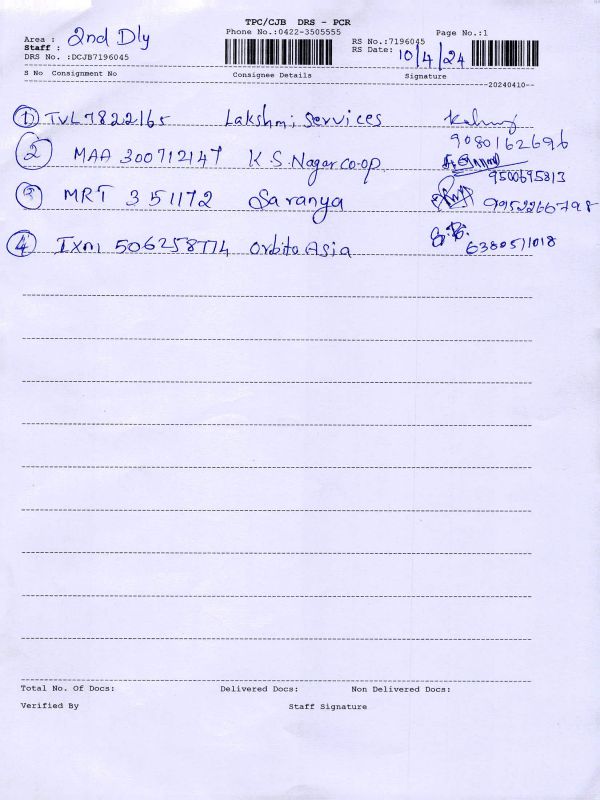 TPC/CJB DRS - PCR
Phone No.:0422-3505555 Page No.:1
Area : 2nd Dly
Staff :
RS No.:7196045
RS Date: 10/4/24
DRS No. :DCJB7196045
S No Consignment No Consignee Details Signature
--20240410--
1 TVL 7822165 Lakshmi Services
9080162696
2 MAA 300712147 K.S.Nagar co-op
9500695813
3 MRT 351172 Saranya 9952266798
4 IXM 506258774 Orbito Asia 6380571018
Total No. Of Docs: Delivered Docs: Non Delivered Docs:
Verified By Staff Signature